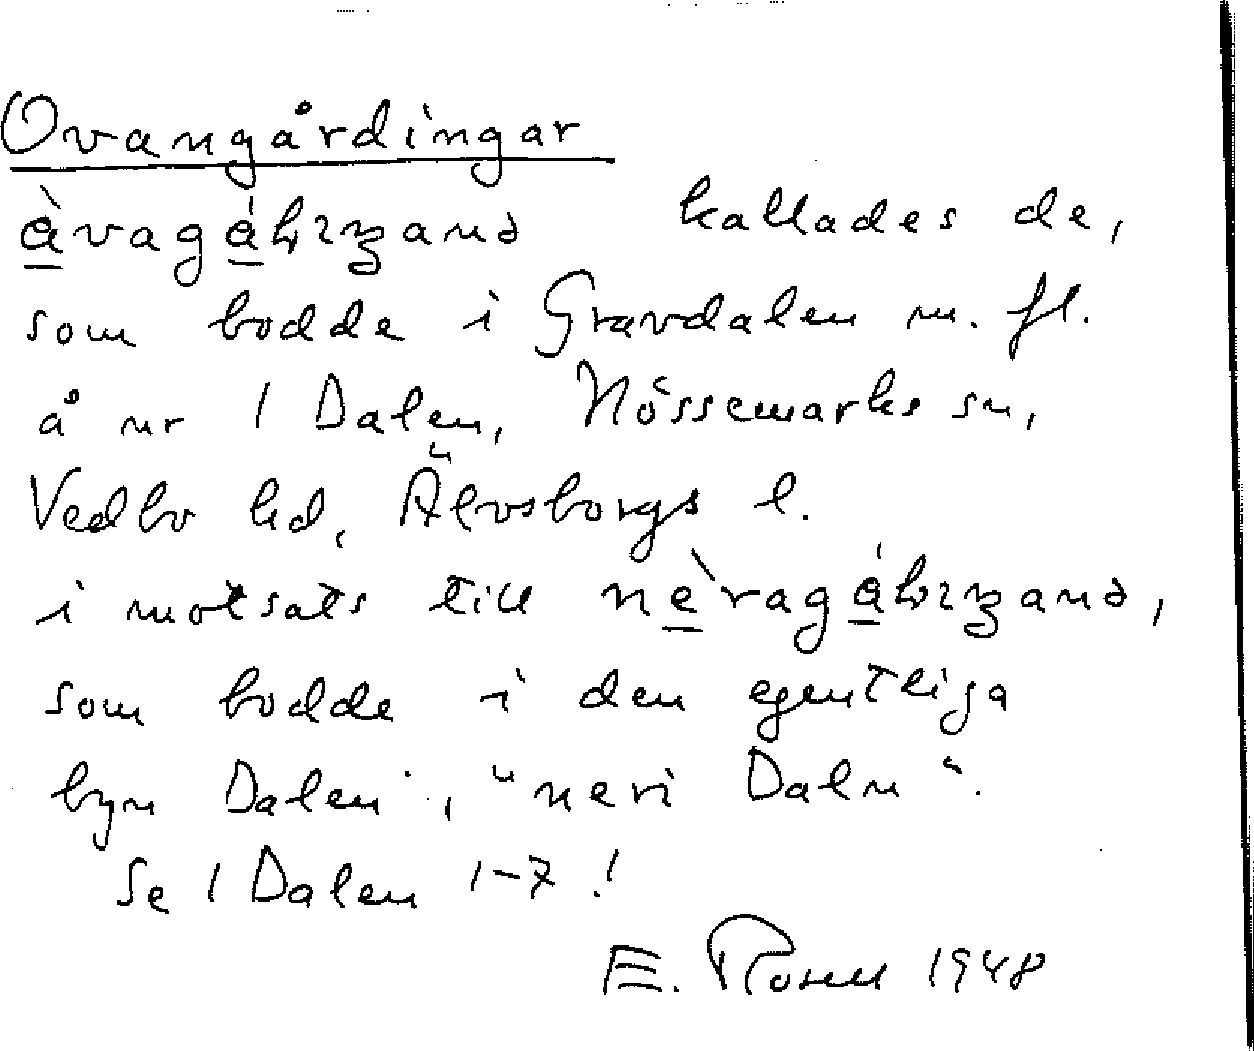 Ovangårdingar
àvagálıŋand kallades de,
som bodde i Gravdalen m. fl.
å nr 1 Dalen, Nössemarks sn,
Vedbo hd, Älvsborgs l.
i motsats till
som bodde i den egentliga
byn Dalen, "neri Daln".
Se 1 Dalen 1-7!
E. Rosell 1948